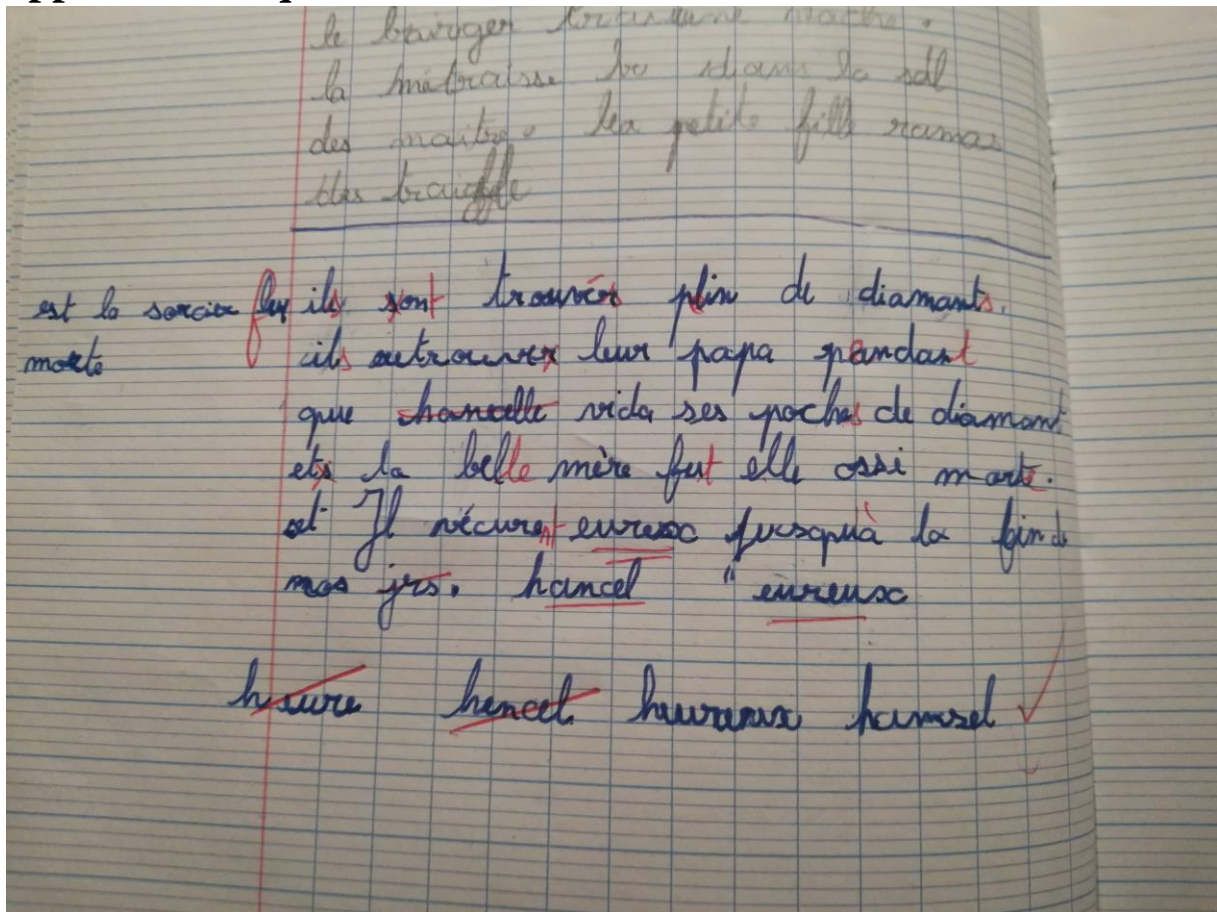 le
la dans la sal
des maitre. les petite fille ramas
des
est la sorcière fut ils sont trouvés plin de diamants.
morte ils retrouver leur papa pendant
que chancelle vida ses poches de diamant
et la belle mère fut elle ossi morte.
et Il vécurent eureux jusquà la fin de
mos jrs. hancel " eureux
heure hencel heureux hansel